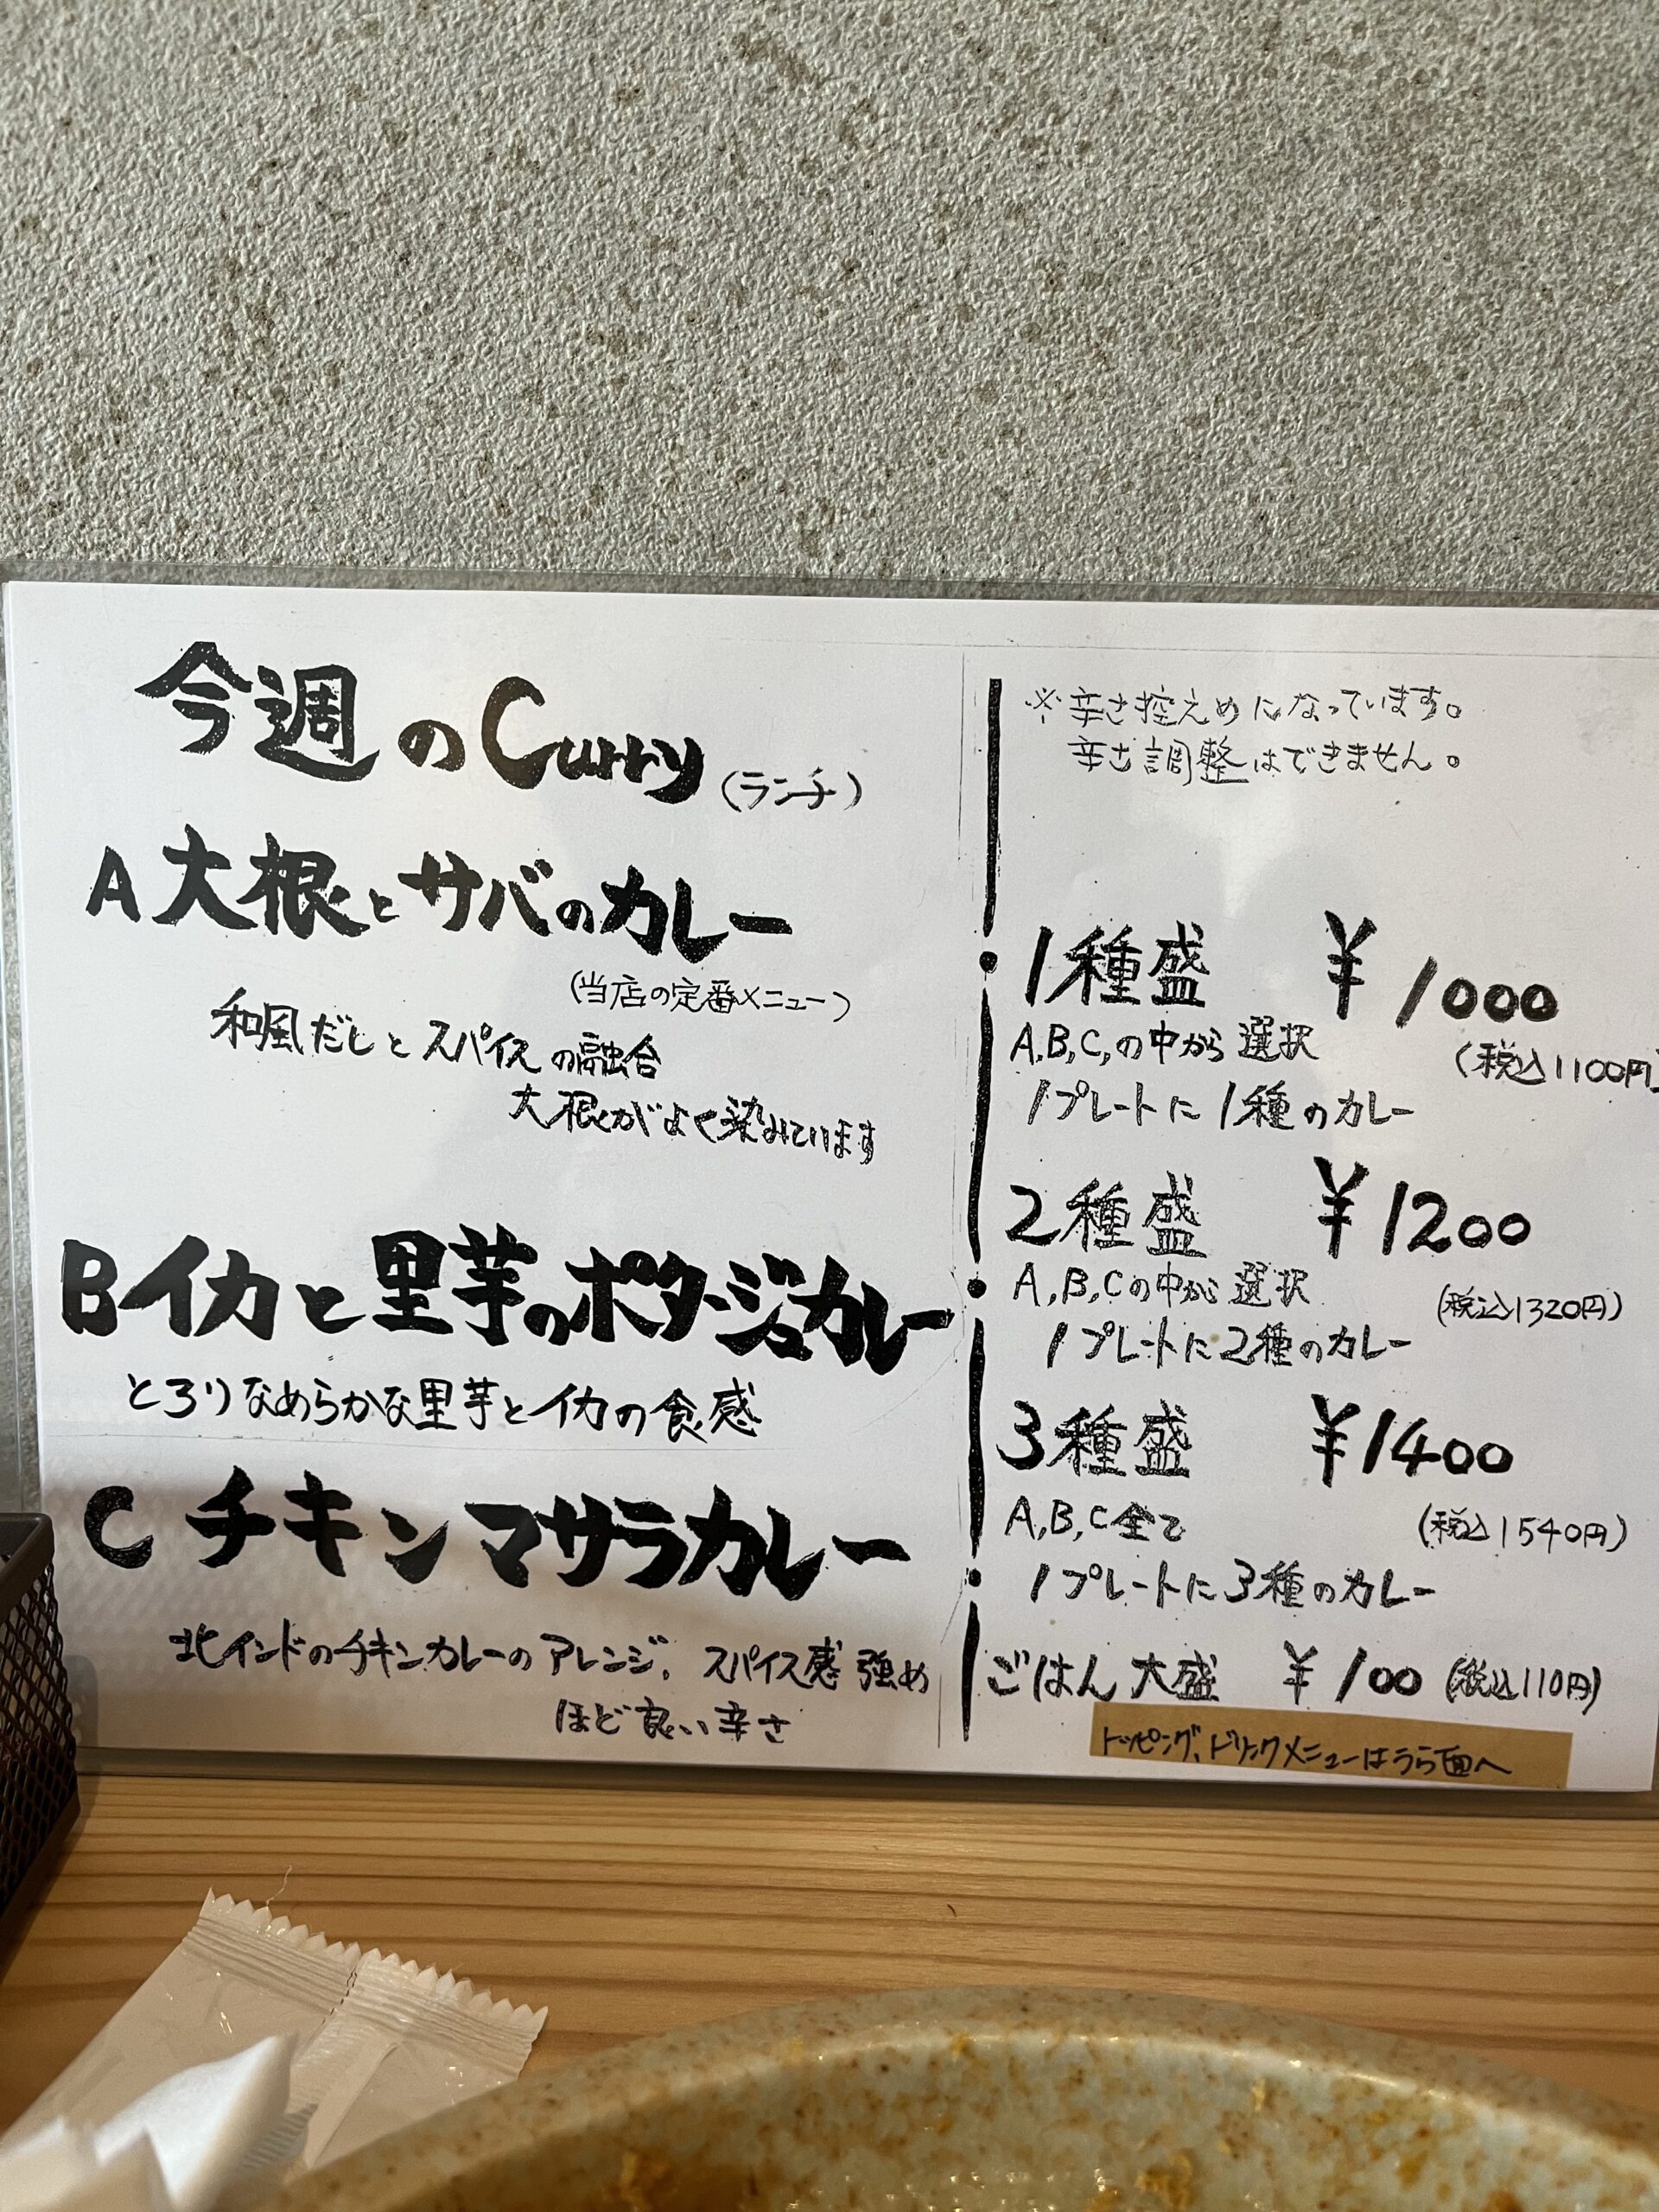 今週のCurry(ランチ)
A大根とサバのカレー
(当店の定番メニュー)
和風だしとスパイスの融合
大根がよく染みています
Bイカと里芋のポタージュカレー
とろりなめらかな里芋とイカの食感
Cチキンマサラカレー
北インドのチキンカレーのアレンジ、スパイス感強め
ほど良い辛さ
※辛さ控えめになっています。
辛さ調整はできません。
1種盛 ¥1000
A,B,C,の中から選択 (税込1100円)
1プレートに1種のカレー
2種盛 ¥1200
A,B,Cの中から選択 (税込1320円)
1プレートに2種のカレー
3種盛 ¥1400
A,B,C全て (税込1540円)
1プレートに3種のカレー
ごはん大盛 ¥100(税込110円)
トッピング、ドリンクメニューはうら面へ